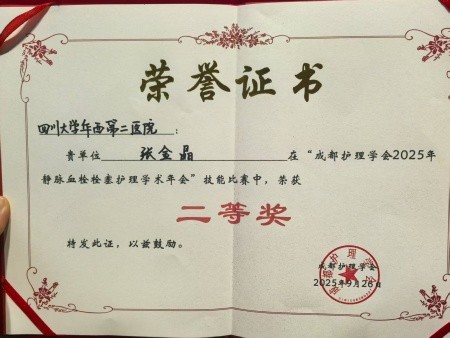 荣誉证书
四川大学华西第二医院：
贵单位 张金晶 在“成都护理学会2025年
静脉血栓栓塞护理学术年会”技能比赛中，荣获
二等奖
特发此证，以兹鼓励。
成都护理学会
成都护理学会
2025年9月26日